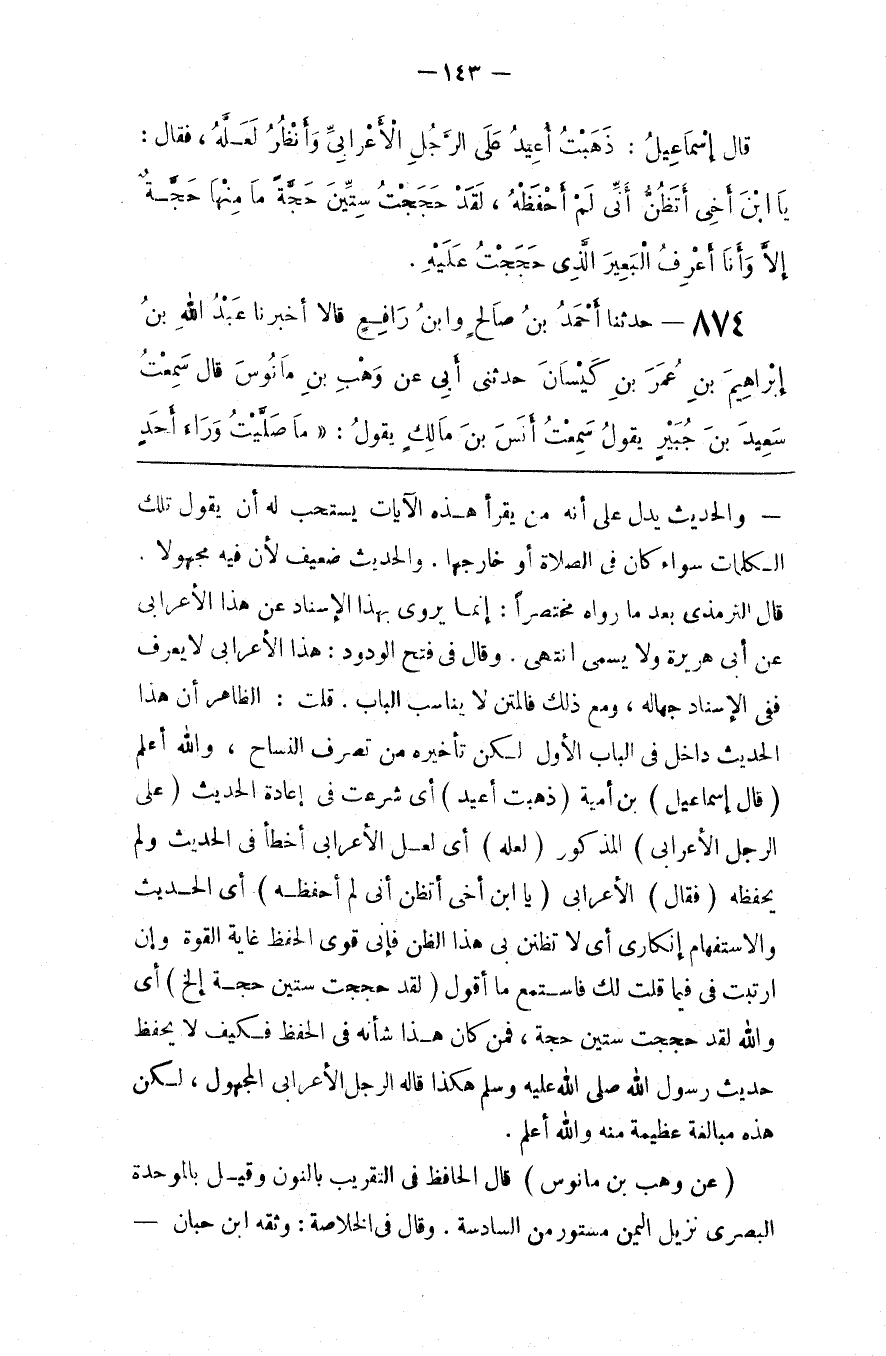 — ١٤٣ —
قال إِسْمَاعِيلُ : ذَهَبْتُ أُعِيدُ عَلَى الرَّجُلِ الْأَعْرَابِيِّ وَأَنْظُرُ لَعَلَّهُ ، فقال :
يَا ابْنَ أَخِى أَتَظُنُّ أَنِّى لَمْ أَحْفَظْهُ ، لَقَدْ حَجَجْتُ سِتِّينَ حَجَّةً مَا مِنْهَا حَجَّةٌ
إِلاَّ وَأَنَا أَعْرِفُ الْبَعِيرَ الَّذِى حَجَجْتُ عَلَيْهِ .
٨٧٤ — حدثنا أَحْمَدُ بنُ صَالحٍ وابنُ رَافِعٍ قالا أخبرنا عَبْدُ اللهِ بنُ
إِبْرَاهِيمَ بنِ عُمَرَ بنِ كَيْسَانَ حدثنى أَبِى عن وَهْبِ بنِ مَانُوسَ قال سَمِعْتُ
سَعِيدَ بنَ جُبَيْرٍ يقولُ سَمِعْتُ أَنَسَ بنَ مَالِكٍ يقولُ : « مَا صَلَّيْتُ وَرَاءَ أَحَدٍ
— والحديث يدل على أنه من يقرأ هذه الآيات يستحب له أن يقول تلك
الكلمات سواء كان فى الصلاة أو خارجها . والحديث ضعيف لأن فيه مجهولا .
قال الترمذى بعد ما رواه مختصراً : إنما يروى بهذا الإسناد عن هذا الأعرابى
عن أبى هريرة ولا يسمى انتهى . وقال فى فتح الودود : هذا الأعرابى لايعرف
ففى الإسناد جهاله ، ومع ذلك فالمتن لا يناسب الباب . قلت : الظاهر أن هذا
الحديث داخل فى الباب الأول لكن تأخيره من تصرف النساح ، والله أعلم
( قال إسماعيل ) بن أمية ( ذهبت أعيد ) أى شرعت فى إعادة الحديث ( على
الرجل الأعرابى ) المذكور ( لعله ) أى لعل الأعرابى أخطأ فى الحديث ولم
يحفظه ( فقال ) الأعرابى ( يا ابن أخى أتظن أنى لم أحفظه ) أى الحديث
والاستفهام إنكارى أى لا تظنن بى هذا الظن فإنى قوى الحفظ غاية القوة وإن
ارتبت فى فيما قلت لك فاستمع ما أقول ( لقد حججت ستين حجة إلخ ) أى
والله لقد حججت ستين حجة ، فمن كان هذا شأنه فى الحفظ فكيف لا يحفظ
حديث رسول الله صلى الله عليه وسلم هكذا قاله الرجل الأعرابى المجهول ، لكن
هذه مبالغة عظيمة منه والله أعلم .
( عن وهب بن مانوس ) قال الحافظ فى التقريب بالنون وقيل بالموحدة
البصرى نزيل اليمن مستور من السادسة . وقال فى الخلاصة : وثقه ابن حبان —